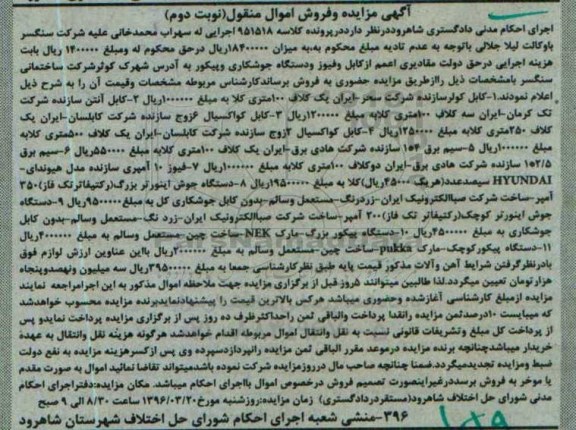 آگهی مزایده وفروش اموال منقول(نوبت دوم)
اجرای احکام مدنی دادگستری شاهروددرنظر دارددرپرونده کلاسه ۹۵۱۵۱۸ اجرایی له سهراب محمدخانی علیه شرکت سنگسر
باوکالت لیلا جلالی باتوجه به عدم تادیه مبلغ محکوم به،به میزان ۱۸۴۰۰۰۰۰ریال درحق محکوم له ومبلغ ۱۴۰۰۰۰۰ ریال بابت
هزینه اجرایی درحق دولت مقادیری اعمم ازکابل وفیوز ودستگاه جوشکاری وپیکور به آدرس شهرک کوثرشرکت ساختمانی
سنگسر بامشخصات ذیل راازطریق مزایده حضوری به فروش برساندکارشناس مربوطه مشخصات وقیمت آن را به شرح ذیل
اعلام نمودند.۱-کابل کولرسازنده شرکت سحر-ایران یک کلاف ۱۰۰متری کلا به مبلغ ۱۰۰۰۰۰۰ریال ۲-کابل آنتن سازنده شرکت
تک کرمان-ایران سه کلاف ۱۰۰متری کلابه مبلغ ۱۲۰۰۰۰۰ریال ۳-کابل کواکسیال ۶زوج سازنده شرکت کابلسان-ایران یک
کلاف ۲۵۰متری کلابه مبلغ ۱۲۵۰۰۰۰ریال ۴-کابل کواکسیال ۲زوج سازنده شرکت کابلسان-ایران یک کلاف ۵۰۰متری کلابه
مبلغ ۱۰۰۰۰۰۰ریال ۵-سیم برق ۱*۴ سازنده شرکت هادی برق-ایران یک کلاف ۱۰۰متری کلابه مبلغ ۵۵۰۰۰۰ریال ۶-سیم برق
۱*۲/۵ سازنده شرکت هادی برق-ایران دوکلاف ۱۰۰متری کلابه مبلغ ۱۰۰۰۰۰۰ریال ۷-فیوز ۱۰ آمپری سازنده مدل هیوندای-
HYUNDAI سیصدعدد(هریک ۶۵۰۰۰ریال)کلا به مبلغ ۱۹۵۰۰۰۰۰ریال ۸-دستگاه جوش اینورتر بزرگ(رکتیفایرتک فاز)۳۵۰
آمپر-ساخت شرکت صباالکترونیک ایران-زردرنگ-مستعمل وسالم-بدون کابل جوشکاری کل به مبلغ۹۵۰۰۰۰۰ریال ۹-دستگاه
جوش اینورتر کوچک(رکتیفایر تک فاز)۲۰۰ آمپر-ساخت شرکت صباالکترونیک ایران-زرد رنگ-مستعمل وسالم-بدون کابل
جوشکاری به مبلغ ۴۵۰۰۰۰۰ریال ۱۰-دستگاه پیکور بزرگ-مارک NEK-ساخت چین-مستعمل وسالم به مبلغ ۴۰۰۰۰۰۰ریال
۱۱-دستگاه پیکورکوچک-مارک pukka-ساخت چین-مستعمل وسالم به مبلغ ۲۰۰۰۰۰۰ریال بااین عناوین ارزش لوازم فوق
بادرنظرگرفتن شرایط آهن وآلات مذکور قیمت پایه طبق نظرکارشناسی جمعا به مبلغ ۳۹۵۰۰۰۰۰ریال سه میلیون ونهصدوپنجاه
هزارتومان تعیین میگردد.لذا طالبین میتوانند ۵روز قبل از برگزاری مزایده جهت ملاحظه اموال مذکور به این اجرامراجعه نمایند
مزایده ازمبلغ کارشناسی آغازشده وحضوری میباشد هرکس بالاترین قیمت را پیشنهادنمایدبرنده مزایده محسوب خواهدشد
که میبایست ۱۰درصدثمن مزایده رانقدا پرداخت والباقی ثمن راحداکثرظرف ده روز پس از برگزاری مزایده پرداخت نمایدو پس
از پرداخت کل مبلغ وتشریفات قانونی نسبت به نقل وانتقال اموال مربوطه اقدام خواهدشد هرگونه هزینه نقل وانتقال به عهده
خریدار میباشدچنانچه برنده مزایده درموعد مقرر الباقی ثمن مزایده رانپردازدسپرده وی پس ازکسرهزینه مزایده به نفع دولت
ضبط ومزایده تجدیدمیگردد.ضمنا چنانچه صاحب مال درروزمزایده شرکت نموده باشدمیتواند تقاضا نمائید اموال به صورت مقدم
یا موخر به فروش برسددرغیراینصورت تصمیم فروش درخصوص اموال بااجرای احکام میباشد. مکان مزایده:دفتراجرای احکام
مدنی شورای حل اختلاف شاهرود(مستقردردادگستری) زمان مزایده:روزشنبه مورخ۱۳۹۶/۰۳/۲۰ ساعت ۸/۳۰ الی ۹ صبح
۳۹۶-منشی شعبه اجرای احکام شورای حل اختلاف شهرستان شاهرود